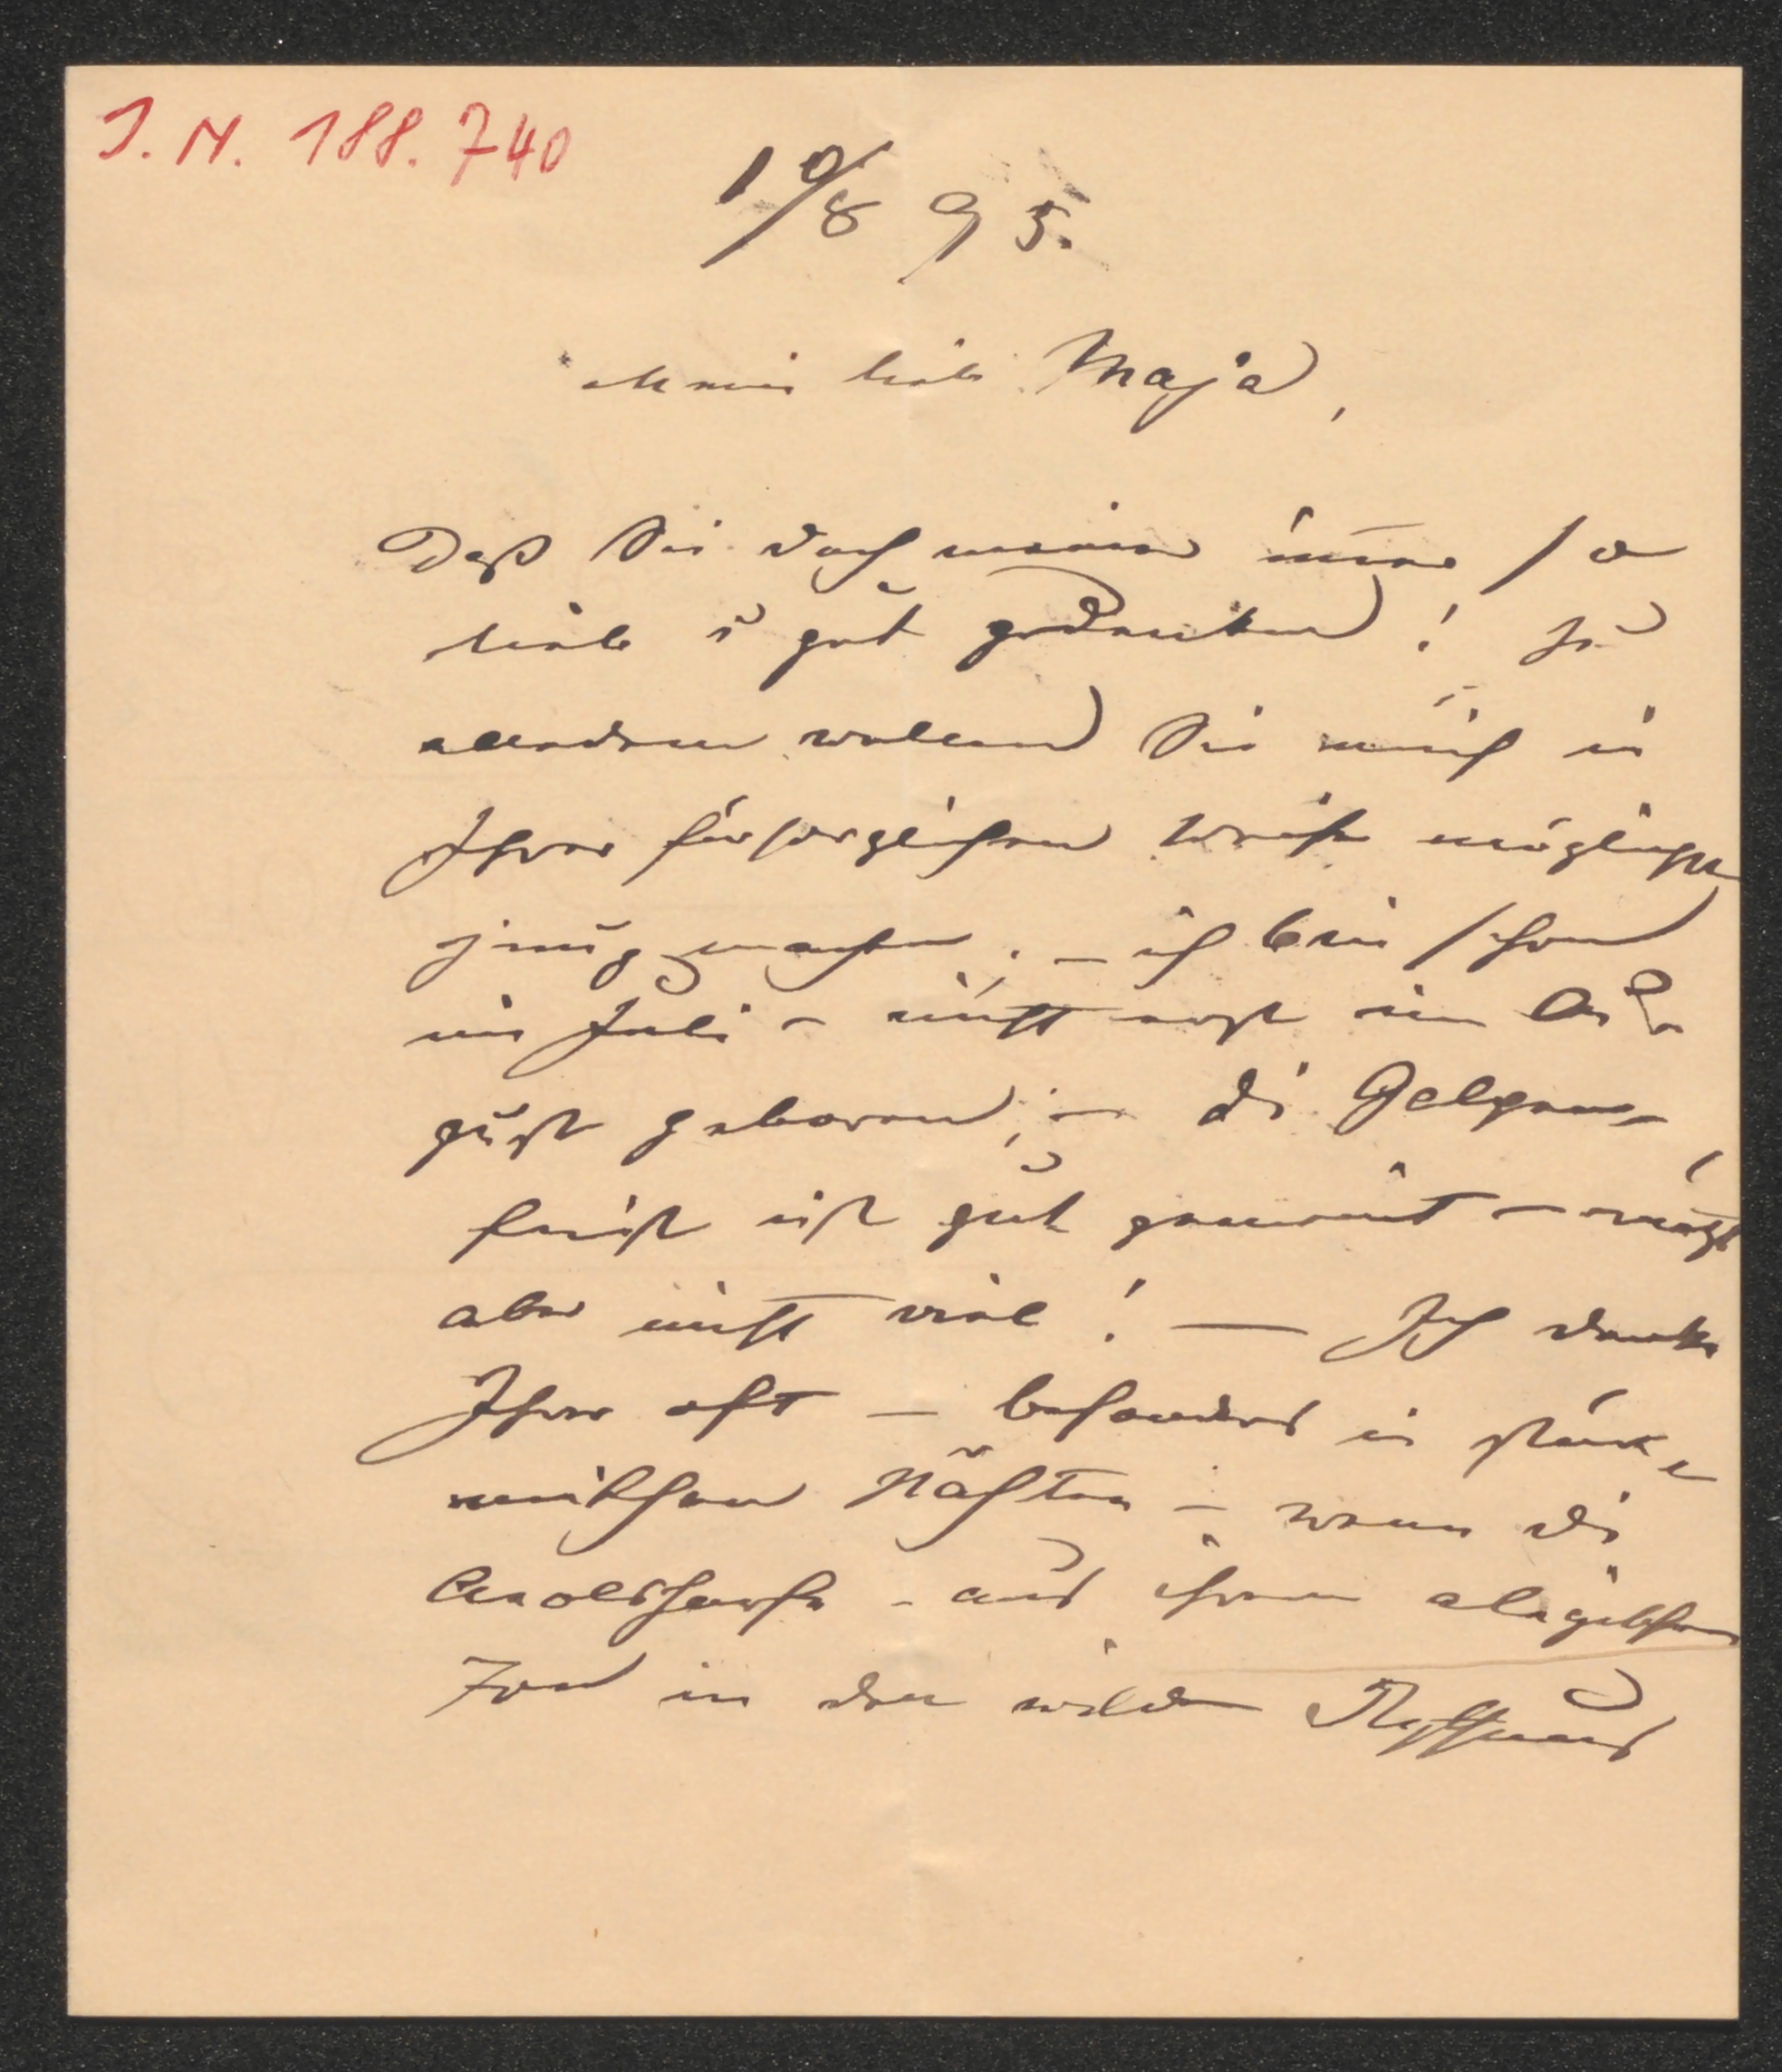 J. N. 188.740
10/8 95.
Meine liebe Maja,
Daß Sie doch meiner immer so
lieb u gut gedenken! Zu
alledem wollen Sie mich in
Ihrer fürsorglichen Weise möglichst
jung machen; – ich bin schon
im Juli – nicht erst im Au-
gust geboren; – die Galgen-
frist ist gut gemeint – nützt
aber nicht viel! – Ich denke
Ihrer oft – besonders in stür-
mischen Nächten – wenn die
Aeolsharfe – aus ihren elegischen
Ton in den wilden Rythmus